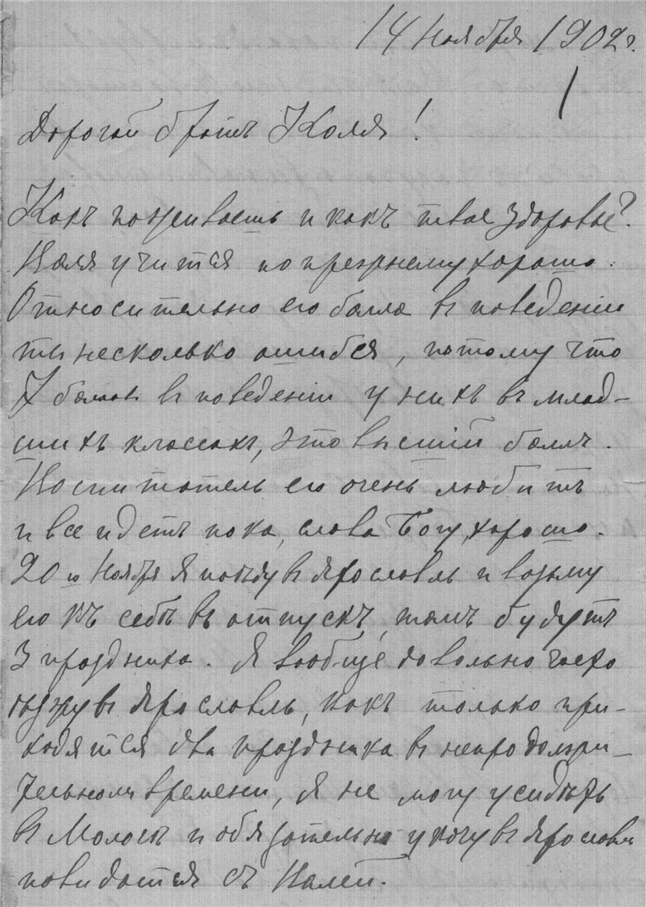 14 Ноября 1902 г.
1
Дорогой братъ Коля!
Какъ поживаешь и какъ твое здоровье?
Валя учится по прежнему хорошо.
Относительно его балла въ поведеніи
ты несколько ошибся, потому что
7 балловъ въ поведеніи у нихъ въ млад-
шихъ классахъ, это высшій баллъ.
Воспитатель его очень любитъ
и все идетъ пока, слава Богу, хорошо.
20го Ноября я поѣду въ Ярославль и возьму
его къ себѣ въ отпускъ, тамъ будутъ
3 праздника. Я вообще довольно часто
ѣзжу въ Ярославль, какъ только при-
ходятся два праздника въ непродолжи-
тельномъ времени, я не могу усидѣть
въ Мологѣ и обязательно укачу въ Ярославль
повидаться съ Валей.